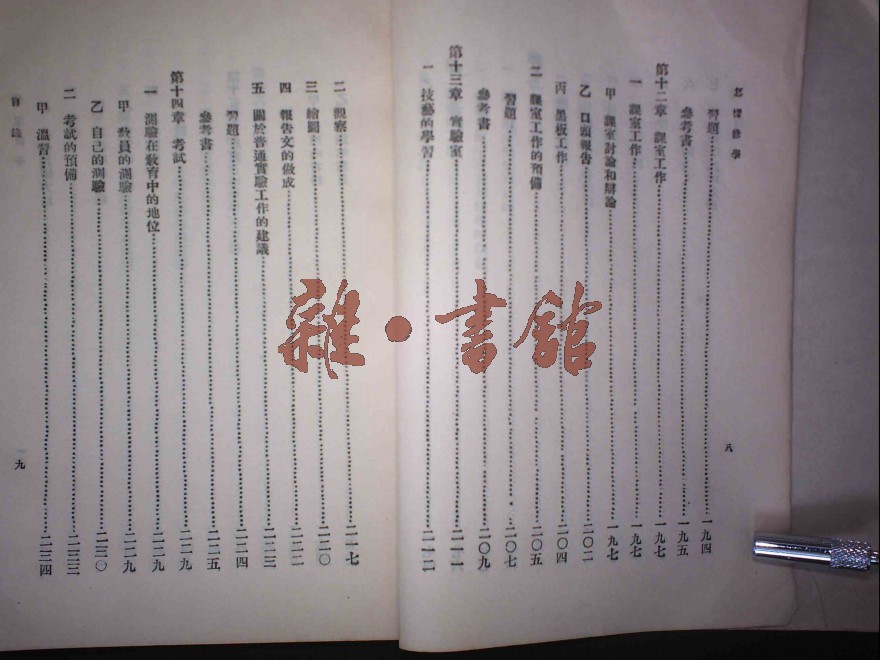 怎樣修學
習題 一九四
參考書 一九五
第十二章 課室工作 一九七
一 課室工作 一九七
甲 課室討論和辯論 一九七
乙 口頭報告 二〇二
丙 黑板工作 二〇四
二 課室工作的預備 二〇五
習題 二〇七
參考書 二〇九
第十三章 實驗室 二一一
一 技藝的學習 二一二
八
二 觀察 二一七
三 繪圖 二二〇
四 報告文的做成 二二二
五 關於普通實驗工作的建議 二二三
習題 二二四
參考書 二二五
第十四章 考試 二二九
一 測驗在教育中的地位 二二九
甲 教員的測驗 二二九
乙 自己的測驗 二三〇
二 考試的預備 二三三
甲 溫習 二三四
目錄
九
雜·書館